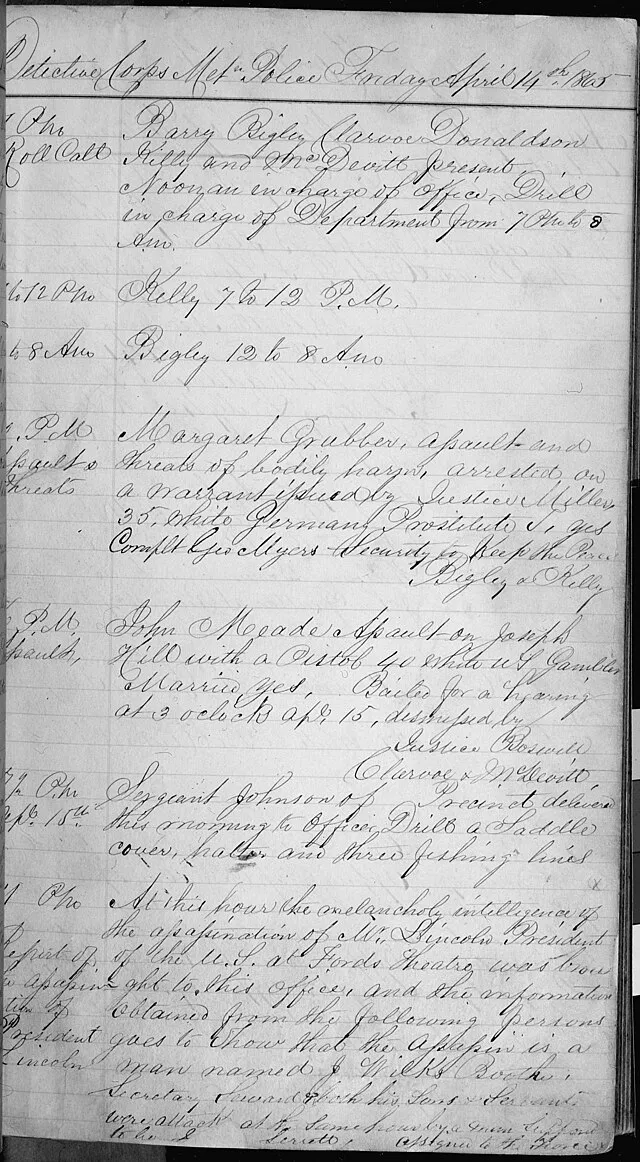 Detective Corps Metn Police Friday April 14th 1865
7 Pm Barry Bigley Clarvoe Donaldson
Roll Call Kelly and McDevitt present,
Noonan in charge of Office, Drill
in charge of Department from 7 Pm to 8
Am.
to 12 Pm Kelly 7 to 12 P.M.
to 8 Am Bigley 12 to 8 Am
P.M Margaret Grubber, assault and
assault & threats of bodily harm, arrested on
Threats a warrant issued by Justice Miller,
35, white Germany Prostitute S, yes
Complt Geo Myers Security to Keep the Peace
Bigley & Kelly
P.M. John Meade Assault on Joseph
assault, Hill with a Pistol 40 White US Gambler
Married yes, Bailed for a hearing
at 3 oclock Apl 15, dismissed by
Justice Boswell
Clarvoe & McDevitt
Pm Sergeant Johnson of Precinct delivered
Apl 15th this morning to Officer Drill a Saddle
cover, halter and three fishing lines
Pm At this hour the melancholy intelligence of
the assassination of Mr. Lincoln President
Report of of the U.S. at Fords Theatre was brou
assassin- ght to this office, and the information
tion of obtained from the following persons
President goes to show that the assassin is a
Lincoln man named J Wilks Booth.
Secretary Seward & both his Sons & Servants
were attack at the same hour by a man supposed
to be